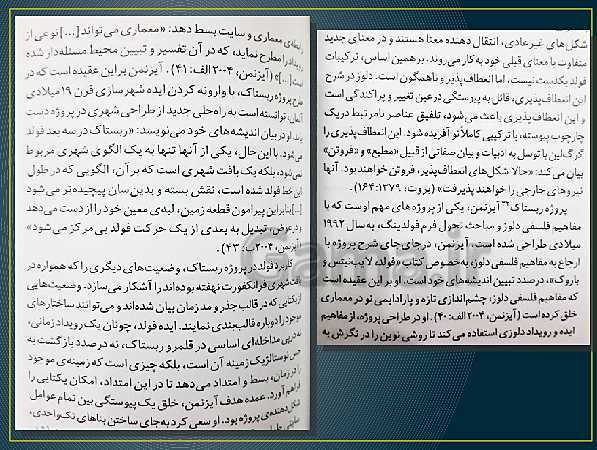 شکل‌های غیرعادی، انتقال دهنده معنا هستند و در معنای جدید
متفاوت با معنای قبلی خود به کار می‌روند. بر همین اساس، ترکیبات
فولد یکدست نیست، اما انعطاف‌پذیر و ناهمگون است. دلوز در شرح
این انعطاف‌پذیری، قائل به پیوستگی در عین تغییر و پراکندگی است
و این انعطاف‌پذیری باعث می‌شود، تلفیق عناصر نامرتبط در یک
چارچوب پیوسته، با ترکیبی کاملاً نو آفریده شود. این انعطاف‌پذیری را
گرگ لین با توسل به ادبیات و بیان صفاتی از قبیل «مطیع» و «فروتن»
بیان می‌کند: «حالا شکل‌های انعطاف‌پذیر، فروتن خواهند بود. آنها
نیروهای خارجی را خواهند پذیرفت» (بروت، ۱۳۷۹: ۱۶۴).
پروژه ربستاک آیزنمن، یکی از پروژه‌های مهم اوست که با
مفاهیم فلسفی دلوز و مباحث تحول فرم فولدینگ، به سال ۱۹۹۲
میلادی طراحی شده است. آیزنمن، در جای جای شرح پروژه با
ارجاع به مفاهیم فلسفی دلوز، به‌خصوص کتاب «فولد، لایب‌نیتس و
باروک»، درصدد تبیین اندیشه‌های خود است. او بر این عقیده است
که مفاهیم فلسفی دلوز، چشم‌اندازی تازه و پارادایمی نو در معماری
خلق کرده است (آیزنمن، ۲۰۰۴ الف: ۴۰). او در طراحی پروژه، از مفاهیم
ایده و رویداد دلوزی استفاده می‌کند تا روشی نوین را در نگرش به
رابطه‌ی معماری و سایت بسط دهد: «معماری می‌تواند [...] نوعی از
رویداد را مطرح نماید، که در آن تفسیر و تبیین محیط مسئله‌دار شده
است [...]» (آیزنمن، ۲۰۰۴ الف: ۴۱). آیزنمن بر این عقیده است که در
طرح پروژه ربستاک، با وارونه کردن ایده شهرسازی قرن ۱۹ میلادی
آلمان، توانسته است به راه‌حلی جدید از طراحی شهری در پروژه دست
یابد. او در بیان اندیشه‌های خود می‌نویسد: «ربستاک در سه بعد فولد
می‌شود. با این حال، یکی از آنها تنها به یک الگوی شهری مربوط
نمی‌شود، بلکه یک بافت شهری است که بر آن، الگویی که در طول
این خط فولد شده است، نقش بسته و بدین‌سان پیچیده‌تر می‌شود
[...] بنابراین پیرامون قطعه زمین، لبه‌ی معین خود را از دست می‌دهد
و در عوض، تبدیل به بعدی از یک حرکت فولد بی‌مرکز می‌شود»
(آیزنمن، ۲۰۰۴ب: ۴۳).
کاربرد فولد در پروژه ربستاک، وضعیت‌های دیگری را که همواره در
بافت شهری فرانکفورت نهفته بوده‌اند را آشکار می‌سازد. وضعیت‌هایی
از یکتایی که در قالب جذر و مد زمان بیان شده‌اند و می‌توانند ساختارهای
موجود را دوباره قالب‌بندی نمایند. ایده فولد، چونان یک رویداد زمانی،
به در پی مداخله‌ای اساسی در قلمرو ربستاک، نه درصدد بازگشت به
حس نوستالژیک زمینه آن است، بلکه چیزی است که زمینه‌ی موجود
را در زمان، بسط و امتداد می‌دهد تا در این امتداد، امکان یکتایی را
فراهم آورد. عمده هدف آیزنمن، خلق یک پیوستگی بین تمام عوامل
شکل‌دهنده‌ی پروژه بود. او سعی کرد به‌جای ساختن بناهای تک‌واحدی،
Gama.ir